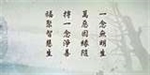 一念無明生
萬惡因緣隨
持一念淨善
福聚智慧生